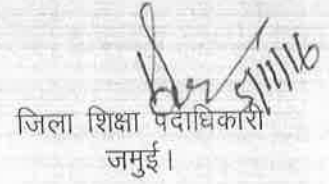 5/11/16
जिला शिक्षा पदाधिकारी
जमुई।